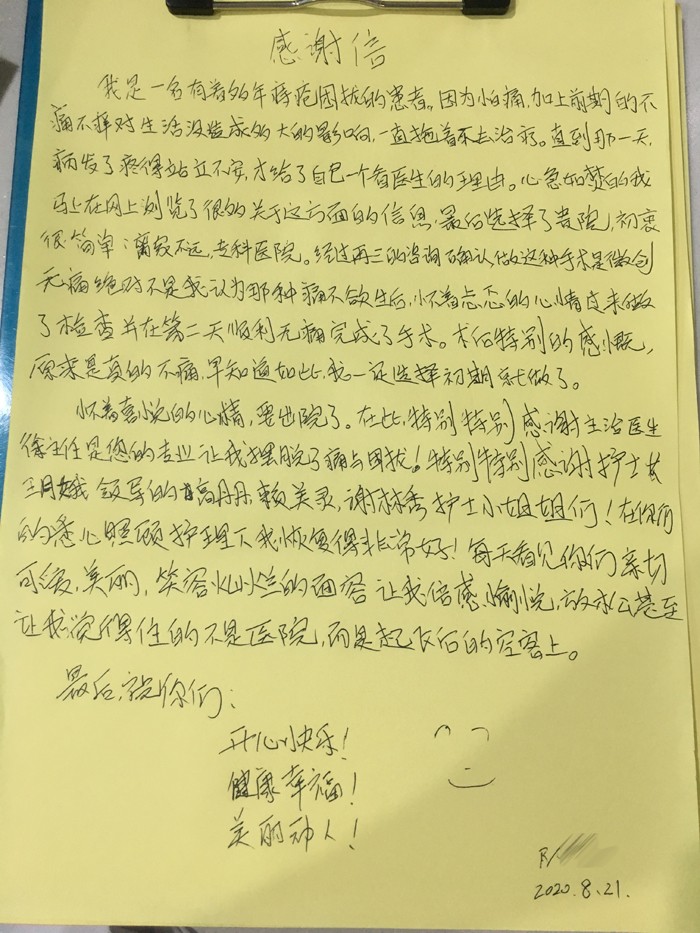 感谢信
我是一名有着多年痔疮困扰的患者。因为怕痛,加上前期的不
痛不痒对生活没造成多大的影响,一直拖着不去治疗。直到那一天,
病发了疼得站立不安,才给了自己一个看医生的理由。心急如焚的我
马上在网上浏览了很多关于这方面的信息,最后选择了贵院,初衷
很简单:离家不远,专科医院。经过再三的咨询确认,做这种手术是微创
无痛绝对不是我认为那种痛不欲生后,怀着忐忑的心情过来做
了检查并在第二天顺利无痛完成了手术。术后特别的感慨,
原来是真的不痛,早知道如此,我一定选择初期就做了。
怀着喜悦的心情,要出院了。在此,特别特别感谢主治医生
徐主任是您的专业让我摆脱了痛与困扰!特别特别感谢护士长
月娥领导的高丹丹,赖美灵,谢林秀护士小姐姐们!在你们
的悉心照顾护理下我恢复得非常好!每天看见你们亲切
可爱,美丽,笑容灿烂的面容让我倍感愉悦,甚至
让我觉得住的不是医院,而是起飞后的空客上。
最后,祝你们:
开心快乐!
健康幸福!
美丽动人!
2020.8.21.